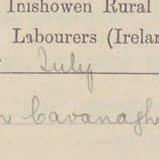 Inishowen Rural
Labourers (Irelan
July
Cavanagh